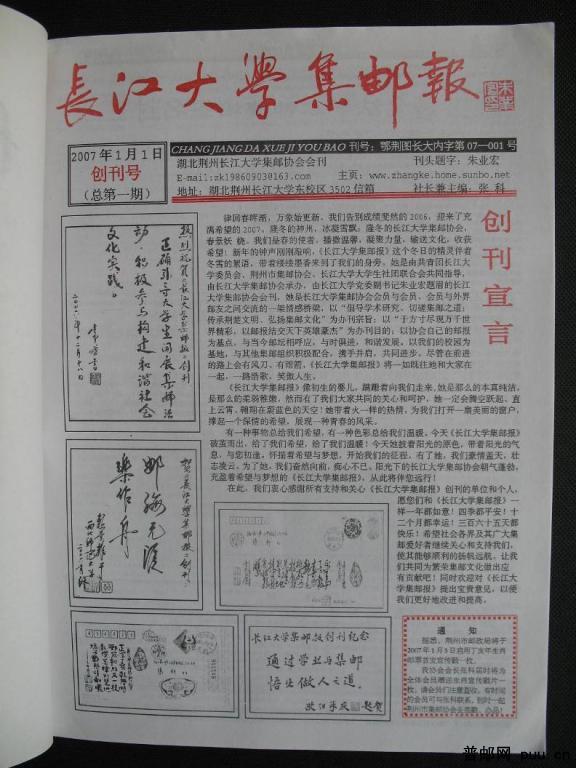 長江大學集邮報
2007年1月1日
创刊号
(总第一期)
CHANG JIANG DA XUE JI YOU BAO 刊号：鄂荆图长大内字第07—001号
湖北荆州长江大学集邮协会会刊 刊头题字：朱业宏
E-mail:zk19860903@163.com 主页：www.zhangke.home.sunbo.net
地址：湖北荆州长江大学东校区3502信箱 社长兼主编：张 科
热烈祝贺《长江大学集邮报》创刊
正确引导大学生开展集邮活
动，积极参与构建和谐社会
文化实践。
二〇〇六年十二月十八日
创刊宣言
律回春晖渐，万象始更新。我们告别成绩斐然的2006，迎来了充
满希望的2007。隆冬的神州，冰凝雪飘。隆冬的长江大学集邮协会，
春意妖娆。我们是春的使者，播撒温馨，凝聚力量，输送文化，收获
希望！新年的钟声刚刚敲响，《长江大学集邮报》这个冬日的精灵伴着
冬雪的絮语，带着缕缕墨香来到了我们的身旁。她是由共青团长江大
学委员会、荆州市集邮协会、长江大学大学生社团联合会共同指导，
由长江大学集邮协会承办，由长江大学党委副书记朱业宏题眉的长江
大学集邮协会会刊，她是长江大学集邮协会会员与会员、会员与外界
邮友之间交流的一架情感桥梁，以“倡导学术研究，切磋集邮之道；
传承荆楚文明，弘扬集邮文化”为办刊宗旨；以“于方寸尽现万千世
界精彩，以邮报结交天下英雄豪杰”为办刊目的；以协会自己的邮报
为基点，与当今邮坛相呼应，与时俱进，和谐发展。以我们的校园为
基地，与其他集邮组织积极配合，携手并肩，共同进步。尽管在前进
的路上会有风刀，有雨箭，《长江大学集邮报》将一如既往地和大家在
一起，一路浩歌，笑傲人生。
《长江大学集邮报》像初生的婴儿，蹒跚着向我们走来，她是那么的本真纯洁，
是那么的柔弱稚嫩，然而在了我们大家共同的关心和呵护，她一定会腾空跃起，直
上云霄，翱翔在蔚蓝色的天空！她带着火一样的热情，为我们打开一扇美丽的窗户，
撑起一个深情的希望，展现一种青春的风采。
有一种事物总给我们希望，有一种色彩总给我们温暖。今天《长江大学集邮报》
破茧而出，给了我们希望，给了我们温暖！今天她披着阳光的原色，带着阳光的气
息，与您初逢，怀揣着希望与梦想，开始我们的征程。有了她，我们豪情盖天，壮
志凌云。为了她，我们奋然向前，痴心不已。阳光下的长江大学集邮协会朝气蓬勃，
充盈着希望与梦想的《长江大学集邮报》，从此将伴您远行！
在此，我们衷心感谢所有支持和关心《长江大学集邮报》创刊的单位和个人，
愿您们和《长江大学集邮报》
一样一年都如意！四季都平安！十
二个月都幸运！三百六十五天都
快乐！希望社会各界及其广大集
邮爱好者继续关心和支持我们，
使其能够顺利的扬帆远航，让我
们共同为繁荣集邮文化做出应
有贡献吧！同时欢迎对《长江大
学集邮报》提出宝贵意见，以便
我们更好地改进和提高。
贺《长江大学集邮报》创刊
邮海无涯
乐作舟
长江大学集邮报创刊纪念
通过学业与集邮
悟出做人之道
欧阳承庆 题贺
通 知
据悉，荆州市邮政局将于
2007年1月5日启用丁亥年生肖
邮票首发宣传戳一枚。
我协会会长张科届时将为
全体会员赠送生肖宣传戳片一
枚，请会员们注意查收，有时间
的会员可与张科联系，到时一起
荆州市集邮协会去盖戳，会员！
普邮网 puu.cn